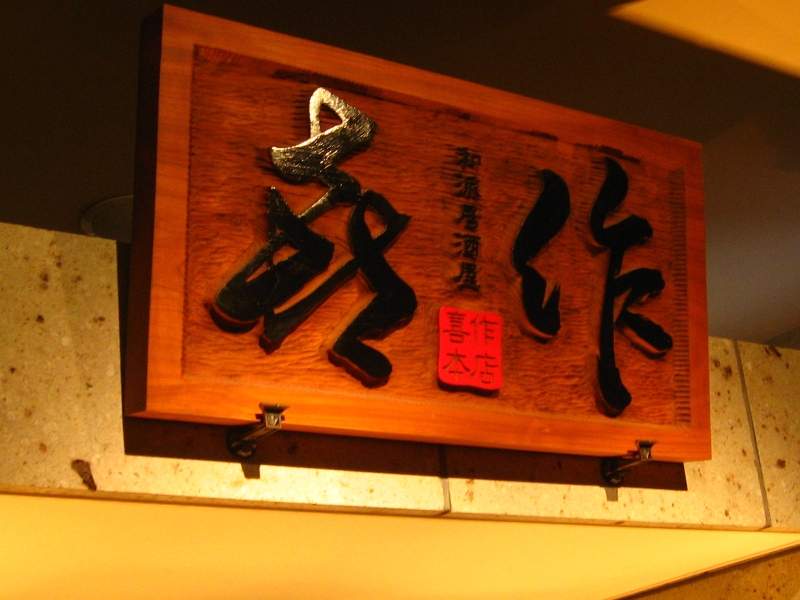 喜作
和派居酒屋
喜作
本店